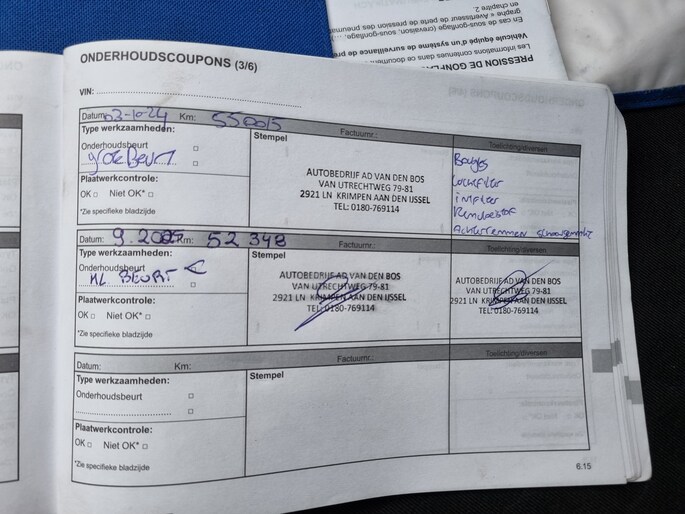 en chapitre 2.
graphe « Avertisseur de perte de pression des pneumat
En cas de sous-gonflage (crevaison, sous-gonflage, ...)
Véhicule équipé d'un système de surveillance de pre
Les informations contenues dans ce document
PRESSION DE GONFLA
ONDERHOUDSCOUPONS (3/6)
VIN:
Datum: 03-10-24 Km: 55005 Factuurnr.: Toelichting/diversen:
Type werkzaamheden:
Onderhoudsbeurt
grote Beurt
Plaatwerkcontrole:
OK □ Niet OK* □
*Zie specifieke bladzijde
Stempel
AUTOBEDRIJF AD VAN DEN BOS
VAN UTRECHTWEG 79-81
2921 LN KRIMPEN AAN DEN IJSSEL
TEL: 0180-769114
Bougies
Luchtfilter
Remvloeistof
Achterremmen schoongemaakt
Datum: 9.2025 Km: 52 348 Factuurnr.: Toelichting/diversen:
Type werkzaamheden:
Onderhoudsbeurt
KL BEURT
Plaatwerkcontrole:
OK □ Niet OK* □
*Zie specifieke bladzijde
Stempel
AUTOBEDRIJF AD VAN DEN BOS
VAN UTRECHTWEG 79-81
2921 LN KRIMPEN AAN DEN IJSSEL
TEL: 0180-769114
AUTOBEDRIJF AD VAN DEN BOS
VAN UTRECHTWEG 79-81
2921 LN KRIMPEN AAN DEN IJSSEL
TEL: 0180-769114
Datum: Km: Factuurnr.: Toelichting/diversen:
Type werkzaamheden:
Onderhoudsbeurt
Plaatwerkcontrole:
OK □ Niet OK* □
*Zie specifieke bladzijde
Stempel
6.15